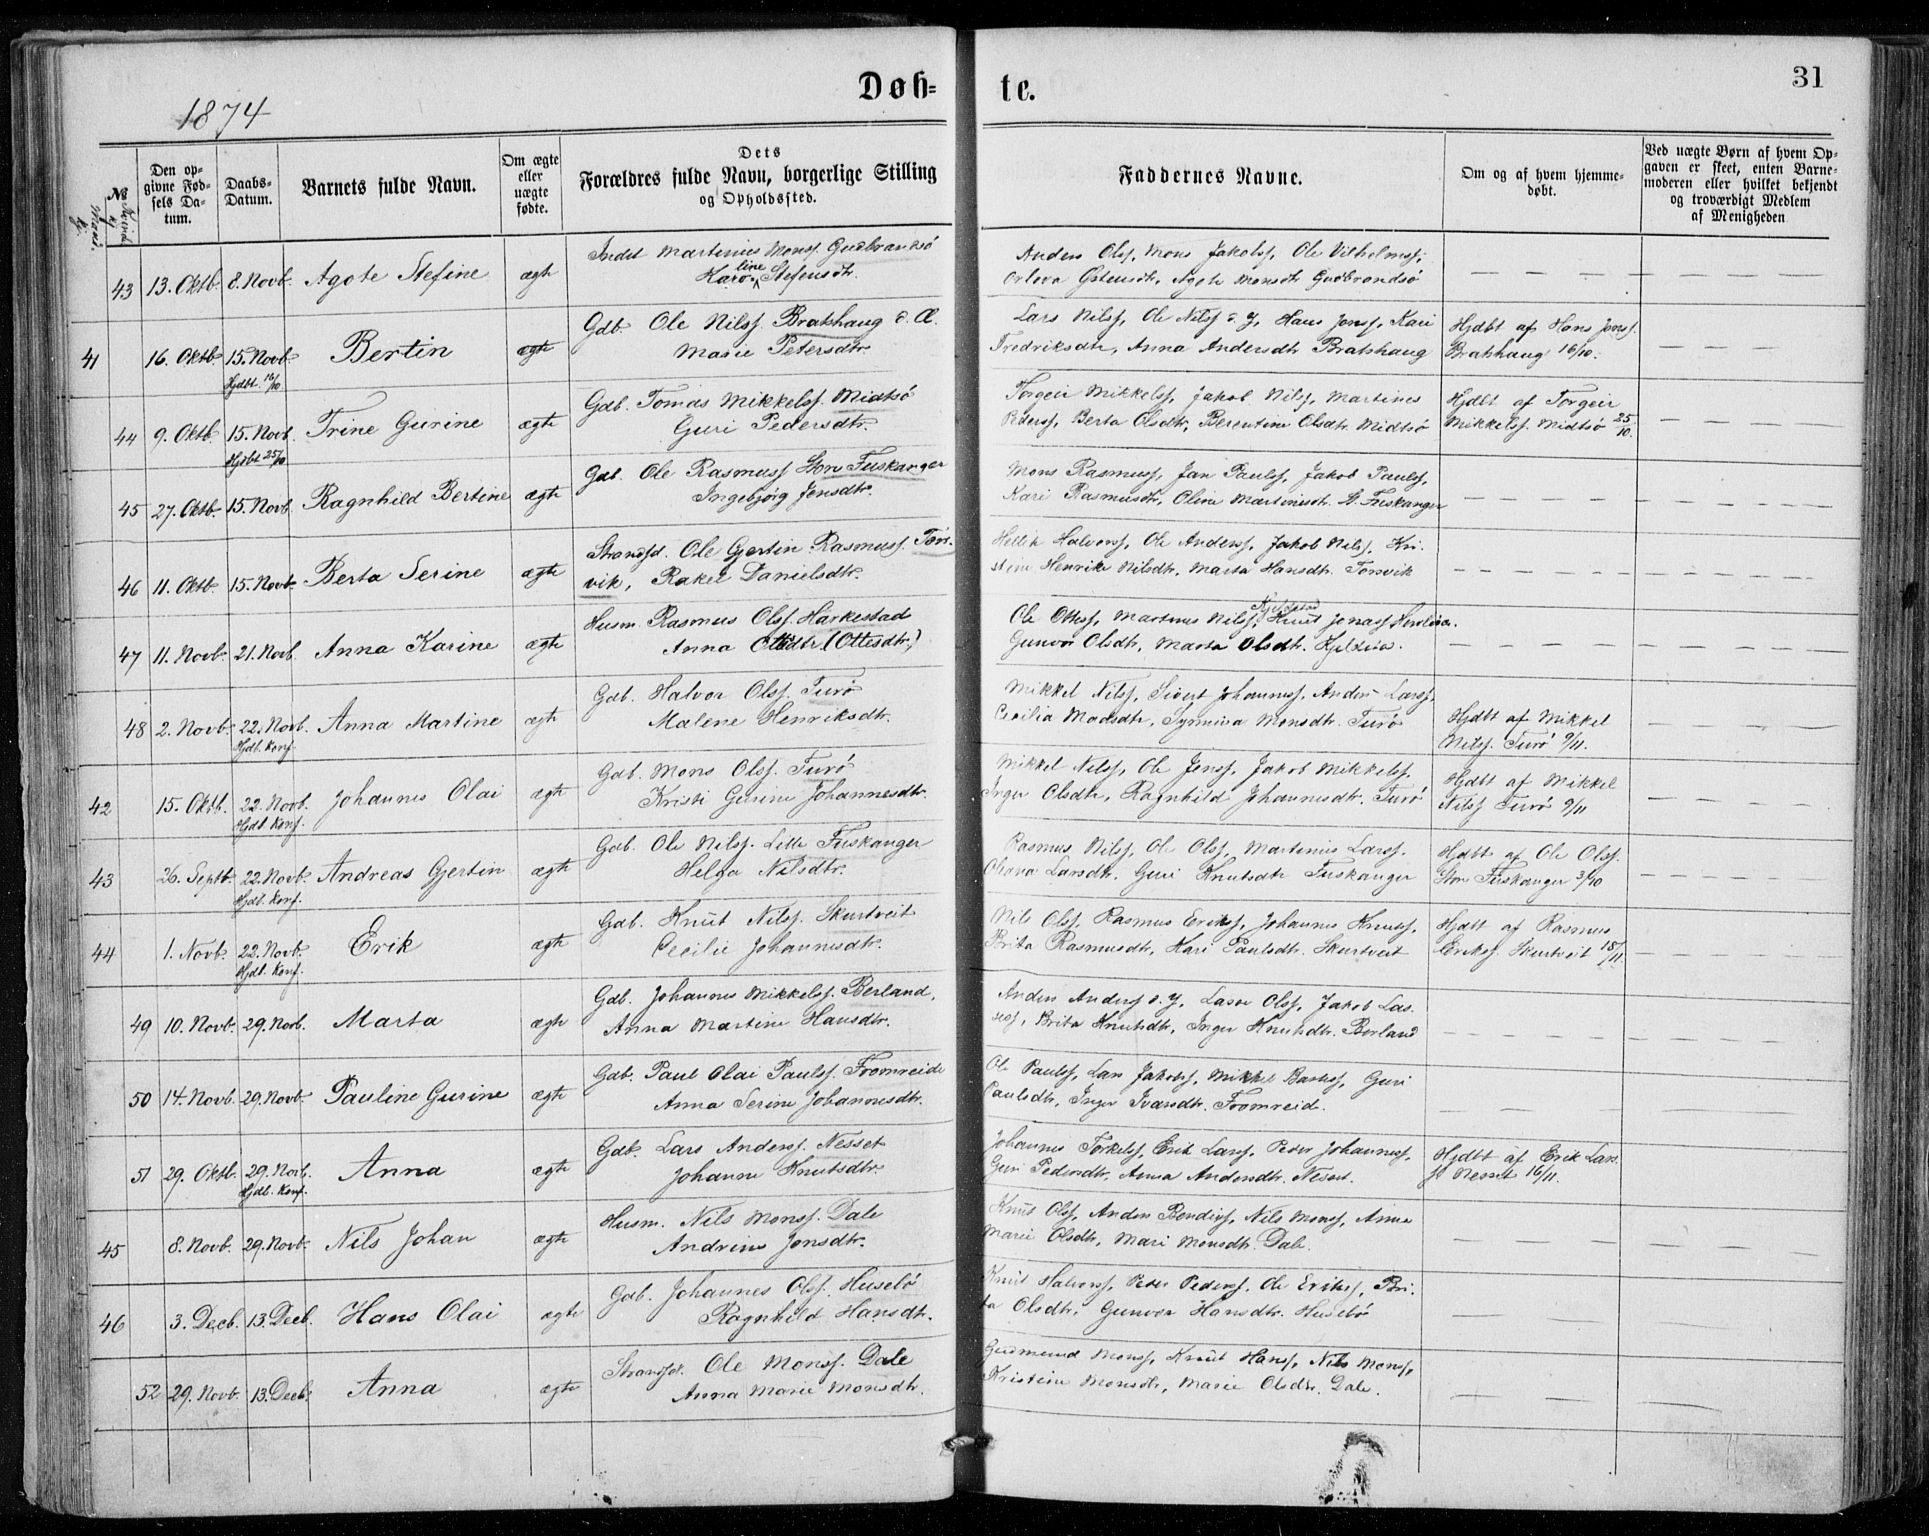 1874
Døb-
te.
31
Mand. kj.
No. Kvind. kj.
Den op-
givne Fød-
sels Da-
tum.
Daabs-
Datum.
Barnets fulde Navn.
Om ægte
eller
uægte
fødte.
Dets
Forældres fulde Navn, borgerlige Stilling
og Opholdssted.
Faddernes Navne.
Om og af hvem hjemme-
døbt.
Ved uægte Børn af hvem Op-
gaven er skeet, enten Barne-
moderen eller hvilket bekjendt
og troværdigt Medlem
af Menigheden
43 13. Oktb. 8. Novb. Agote Stefine ægte
Inds Martinius Monsf. Gudbrandsø
Karoline Stefensdtr.
Anders Olsf, Mons Jakobsf, Ole Vilhelmsf,
Orlova Østensdtr, Agote Monsdtr Gudbrandsø
41 16. Oktb. 15. Novb. Bertin ægte
Hjdbt. 16/10
Gdb. Ole Nilsf. Bratshaug d. Æ.
Marie Petersdtr.
Lars Nilsf, Ole Nilsf d. Y, Hans Jonsf, Kari
Fredriksdtr, Anna Andersdtr Bratshaug
Hjdbt af Hans Jonsf.
Bratshaug 16/10.
44 9. Oktb. 15. Novb. Trine Gurine ægte
Hjdbt 25/10
Gdb. Tomas Mikkelsf. Midtsø
Guri Pedersdtr.
Torgeir Mikkelsf, Jakob Nilsf, Martines
Pedersf, Berta Olsdtr, Berentine Olsdtr. Midtsø
Hjdbt af Torgeir
Mikkelsf. Midtsø 25/10.
45 27. Oktb. 15. Novb. Ragnhild Bertine ægte
Gdb. Ole Rasmusf Store Fuskanger
Ingebjørg Jensdtr.
Mons Rasmusf, Jan Paulsf, Jakob Paulsf,
Kari Rasmusdtr, Oline Martinusdtr. St. Fuskanger
46 11. Oktb. 15. Novb. Berta Serine ægte
Strandsd. Ole Gjertin Rasmusf. Tøn-
vik, Rakel Danielsdtr.
Halvorsf, Ole Andersf, Jakob Nilsf, Kri-
stine Henrike Nilsdtr, Marta Hansdtr. Tonvik
47 11. Novb. 21. Novb. Anna Karine ægte
Husm. Rasmus Olsf. Harkestad
Anna Ottesdtr. (Ottesdtr.)
Ole Ottesf, Martinus Nilsf, Knut Jonasf
Gunvor Olsdtr, Marta Olsdtr. Kjeldsaas.
48 2. Novb. 22. Novb. Anna Martine ægte
Hjdb. Konf.
Gdb. Halvor Olsf. Turø
Malene Henriksdtr.
Mikkel Nilsf, Sivert Johannesf, Anders Larsf,
Cecilia Madsdtr, Synneva Monsdtr. Turø
Hjdbt af Mikkel
Nilsf. Turø 9/11.
42 15. Oktb. 22. Novb. Johannes Olai ægte
Hjdb. Konf.
Gdb. Mons Olsf. Turø
Kristi Gurine Johannesdtr.
Mikkel Nilsf, Ole Jensf, Jakob Mikkelsf,
Inger Olsdtr, Ragnhild Johannesdtr. Turø
Hjdbt af Mikkel
Nilsf Turø 9/11
43 26. Septb. 22. Novb. Andreas Gjertin ægte
Hjdb. Konf.
Gdb. Ole Nilsf. Lille Fuskanger
Helga Nilsdtr.
Rasmus Nilsf, Ole Olsf, Martinus Larsf,
Oleana Larsdtr, Guri Knutsdtr Fuskanger
Hjdbt af Ole Olsf.
Store Fuskanger 3/10
44 1. Novb. 22. Novb. Erik ægte
Hjdb. Konf.
Gdb. Knut Nilsf. Skurtveit
Cecilie Johannesdtr.
Nils Olsf, Rasmus Eriksf, Johannes Knutsf,
Brita Rasmusdtr, Kari Paulsdtr. Skurtveit
Hjdbt af Rasmus
Eriksf. Skurtveit 18/11.
49 10. Novb. 29. Novb. Marta ægte
Gdb. Johannes Mikkelsf. Berland,
Anna Martine Hansdtr.
Anders Andersf d. Y, Lasse Olsf, Jakob Las-
sesf, Brita Knutsdtr, Inger Knutsdtr. Berland
50 14. Novb. 29. Novb. Pauline Gurine ægte
Gdb. Paul Olai Paulsf. Fromreide
Anna Serine Johannesdtr.
Ole Paulsf, Lars Jakobsf, Mikkel Bartesf, Guri
Paulsdtr, Inger Ivarsdtr. Fromreid.
51 29. Oktb. 29. Novb. Anna ægte
Hjdb. Konf.
Gdb. Lars Andersf. Nesset
Johanne Knutsdtr
Johannes Torkelsf, Erik Larsf, Peder Johannesf,
Guri Pedersdtr, Anna Andersdtr. Nesset.
Hjdbt af Erik Lars-
sf Nesset 16/11.
45 8. Novb. 29. Novb. Nils Johan ægte
Husm. Nils Monsf. Dale
Andrine Jonsdtr.
Knut Olsf, Anders Bendixf, Nils Monsf, Anna
Marie Olsdtr, Mari Monsdtr. Dale.
46 3. Decb. 13. Decb. Hans Olai ægte
Gdb. Johannes Olsf. Husebø
Ragnhild Hansdtr.
Knut Halvorsf, Peder Pedersf, Ole Eriksf, Bri-
ta Olsdtr, Gunvor Hansdtr. Husebø
52 29. Novb. 13. Decb. Anna ægte
Strandsd. Ole Monsf. Dale
Anna Marie Monsdtr.
Gudmund Monsf, Knut Hansf, Nils Monsf,
Kristine Monsdtr, Marie Olsdtr. Dale.